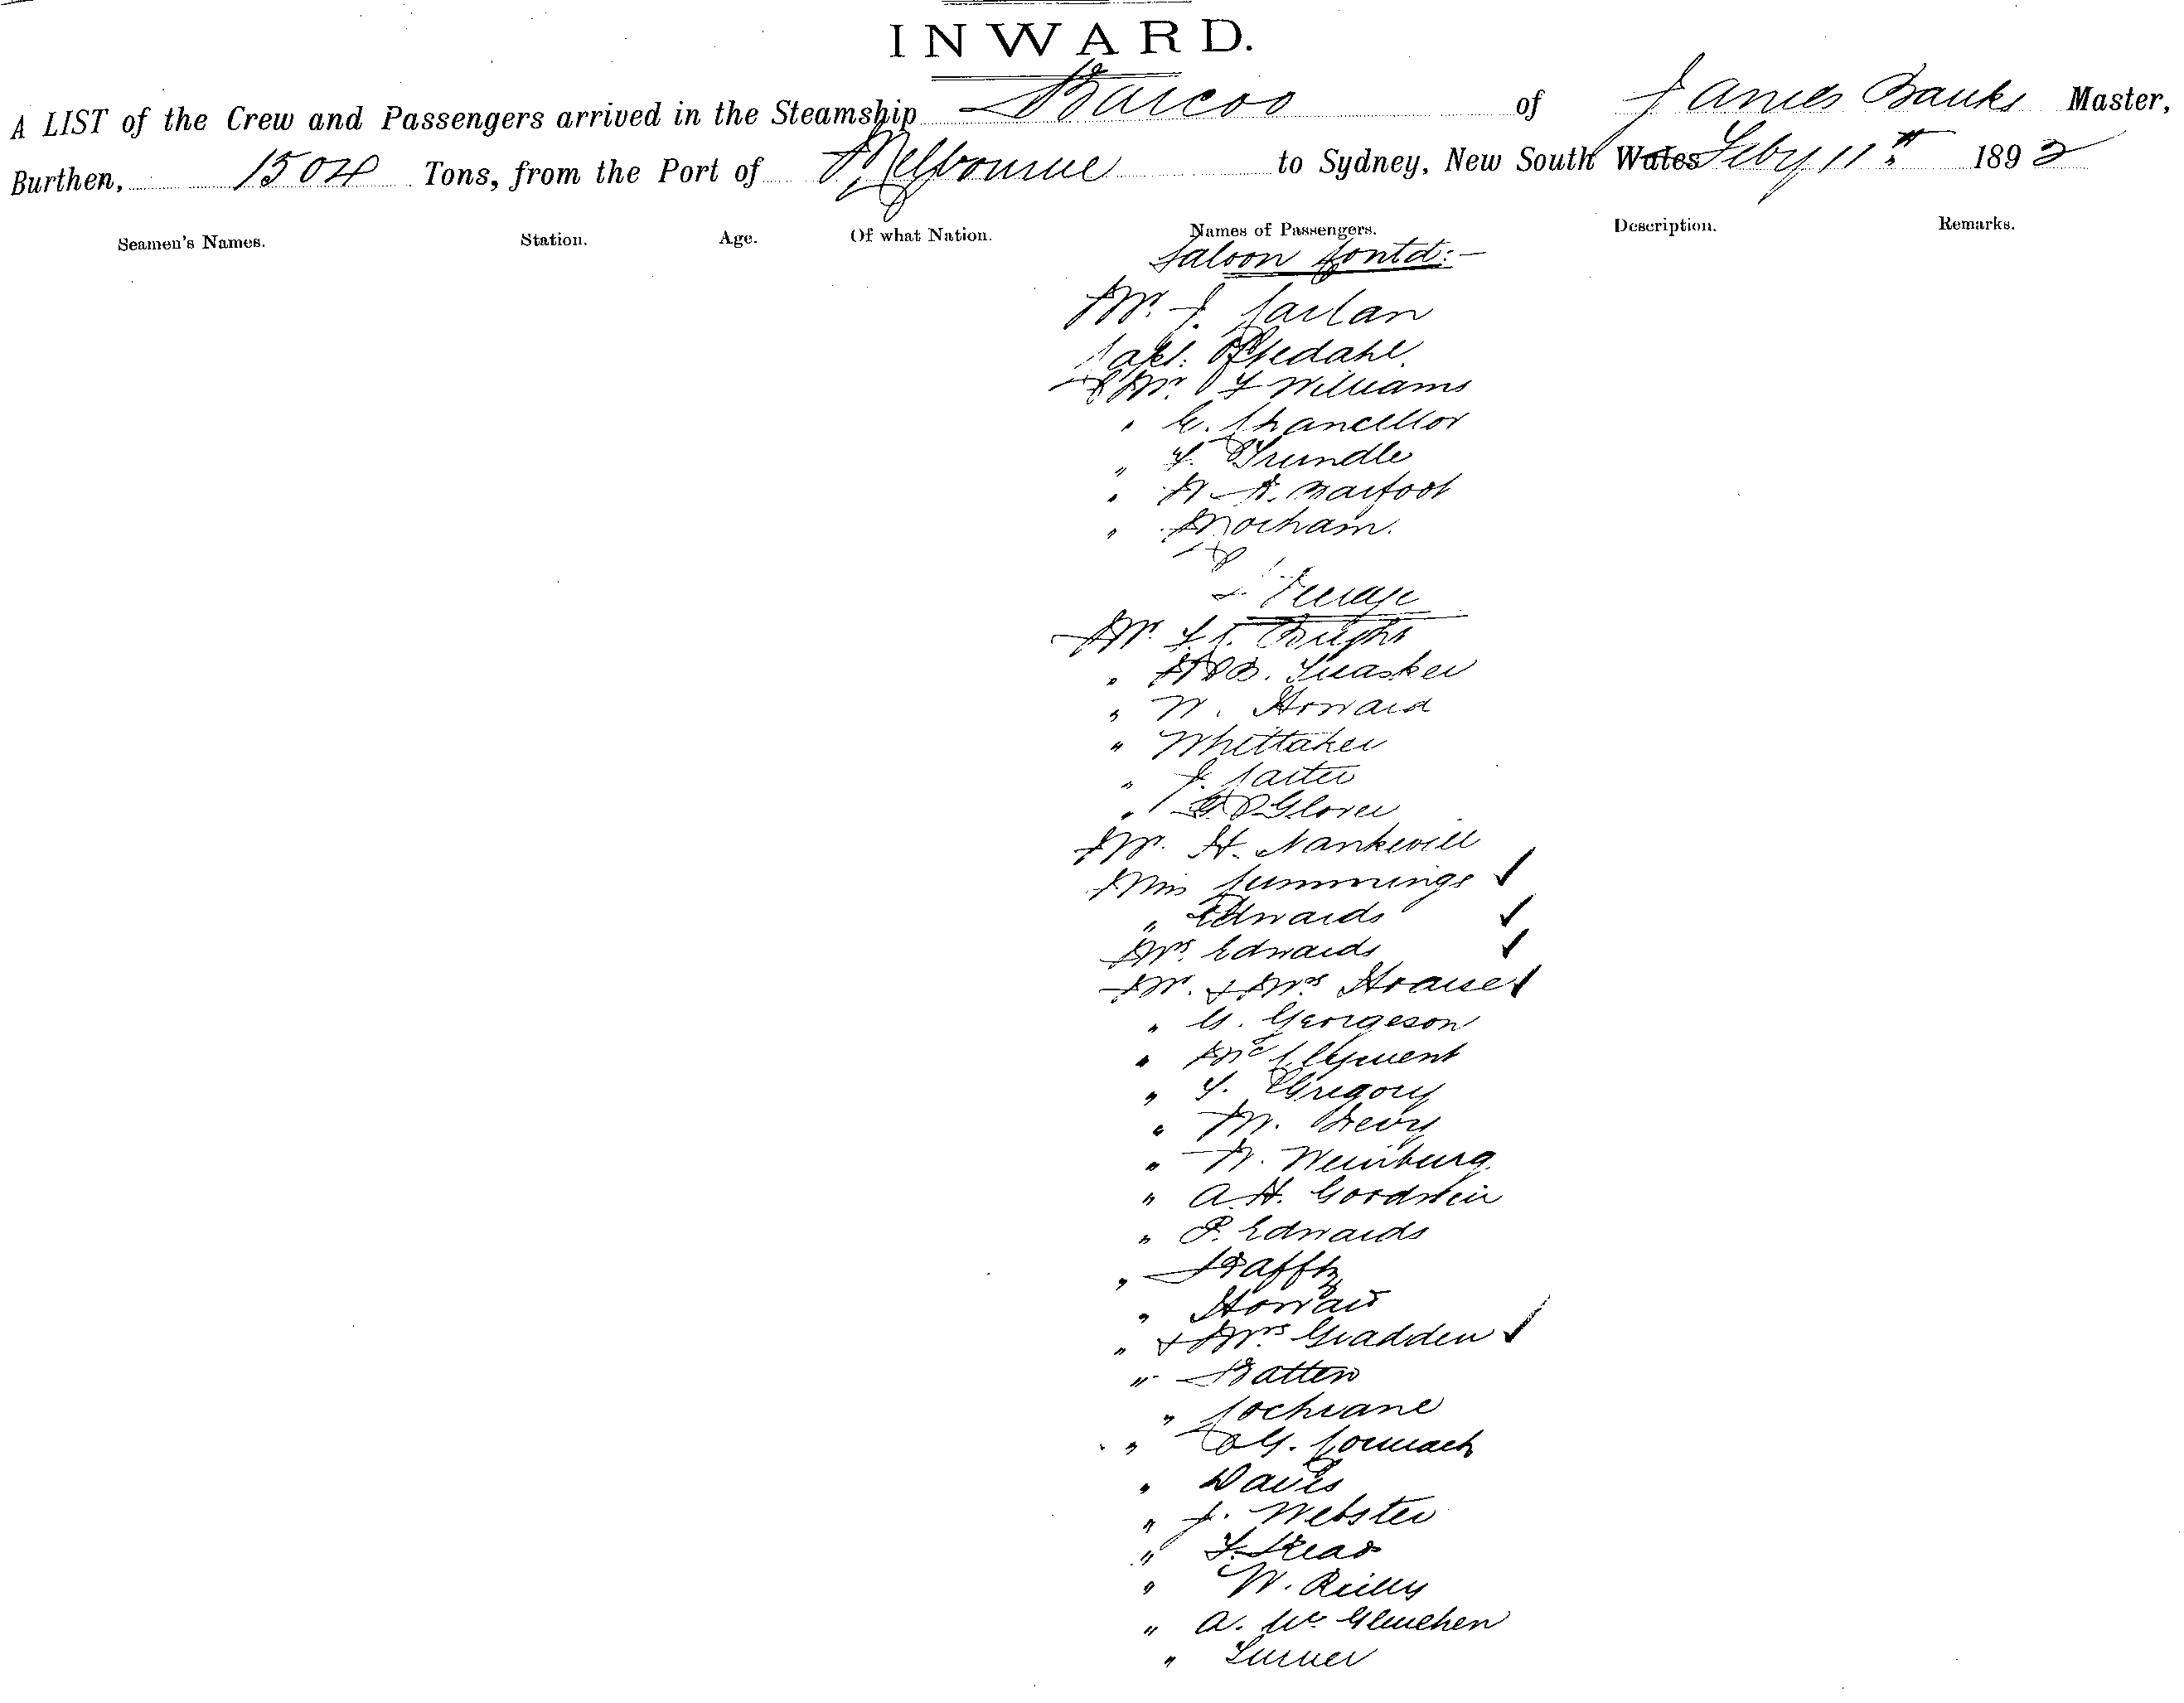 INWARD.
A LIST of the Crew and Passengers arrived in the Steamship Barcoo of James Banks Master,
Burthen, 1504 Tons, from the Port of Melbourne to Sydney, New South Wales Feby 11th 1892
Seamen's Names. Station. Age. Of what Nation. Names of Passengers. Description. Remarks.
Saloon Contd:-
Mr. J. Carlan
Capt.
Mr. F Williams
" C. Chancellor
" F. Trundle
" H. A. Barfoot
" Morham.
Steerage
Mr. Bright
" Trasker
" W. Howard
" Whittaker
" J. Carter
" Glover
Mr. H. Nankivill
Miss Cummings ✓
" Edwards ✓
Mrs. Edwards ✓
Mr. & Mrs Krause ✓
" G. Georgeson
" McClyment
" T. Gregory
" M. Levy
" N. Weinburg.
" A. H. Goodstein
" P. Edwards
" Raffty
" Howard
" & Mrs. Gradden ✓
" Batten
" Cochrane
" Cormack
" Davis
" J. Webster
" F. Read
" W. Reilly
" A. Mc
" Turner